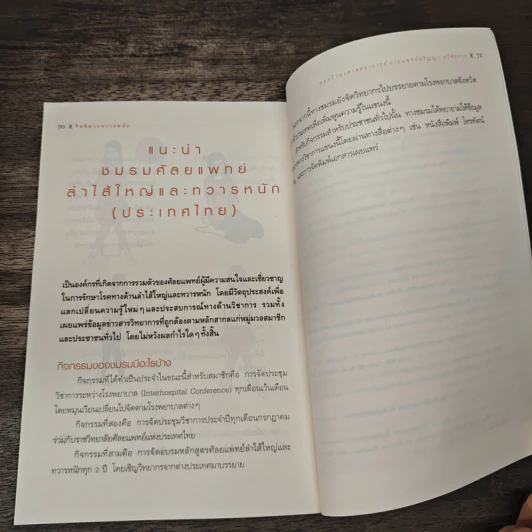 70
แนะนำ
ชมรมศัลยแพทย์
ลำไส้ใหญ่และทวารหนัก
(ประเทศไทย)
เป็นองค์กรที่เกิดจากการรวมตัวของศัลยแพทย์ผู้มีความสนใจและเชี่ยวชาญ
ในการรักษาโรคทางด้านลำไส้ใหญ่และทวารหนัก โดยมีวัตถุประสงค์เพื่อ
แลกเปลี่ยนความรู้ใหม่ๆ และประสบการณ์ทางด้านวิชาการ รวมทั้ง
เผยแพร่ข้อมูลข่าวสารวิทยาการที่ถูกต้องตามหลักสากลแก่หมู่มวลสมาชิก
และประชาชนทั่วไป โดยไม่หวังผลกำไรใดๆ ทั้งสิ้น
กิจกรรมของชมรมมีอะไรบ้าง
กิจกรรมที่ได้ทำเป็นประจำในขณะนี้สำหรับสมาชิกคือ การจัดประชุม
วิชาการระหว่างโรงพยาบาล (Interhospital Conference) ทุกเดือนเว้นเดือน
โดยหมุนเวียนเปลี่ยนไปจัดตามโรงพยาบาลต่างๆ
กิจกรรมที่สองคือ การจัดประชุมวิชาการประจำปีทุกเดือนกรกฎาคม
ร่วมกับราชวิทยาลัยศัลยแพทย์แห่งประเทศไทย
กิจกรรมที่สามคือ การจัดอบรมหลักสูตรศัลยแพทย์ลำไส้ใหญ่และ
ทวารหนักทุก ๒ ปี โดยเชิญวิทยากรจากต่างประเทศมาบรรยาย
71
นอกจากนี้ทางชมรมยังจัดวิทยากรไปบรรยายตามโรงพยาบาลจังหวัด
เพื่อเพิ่มพูนความรู้ในแขนงนี้
สำหรับกิจกรรมสำหรับประชาชนทั่วไปนั้น ทางชมรมได้พยายามให้ข้อมูล
ทางวิชาการแขนงนี้โดยผ่านทางสื่อต่างๆ เช่น หนังสือพิมพ์ โทรทัศน์
และการจัดพิมพ์เอกสารเผยแพร่